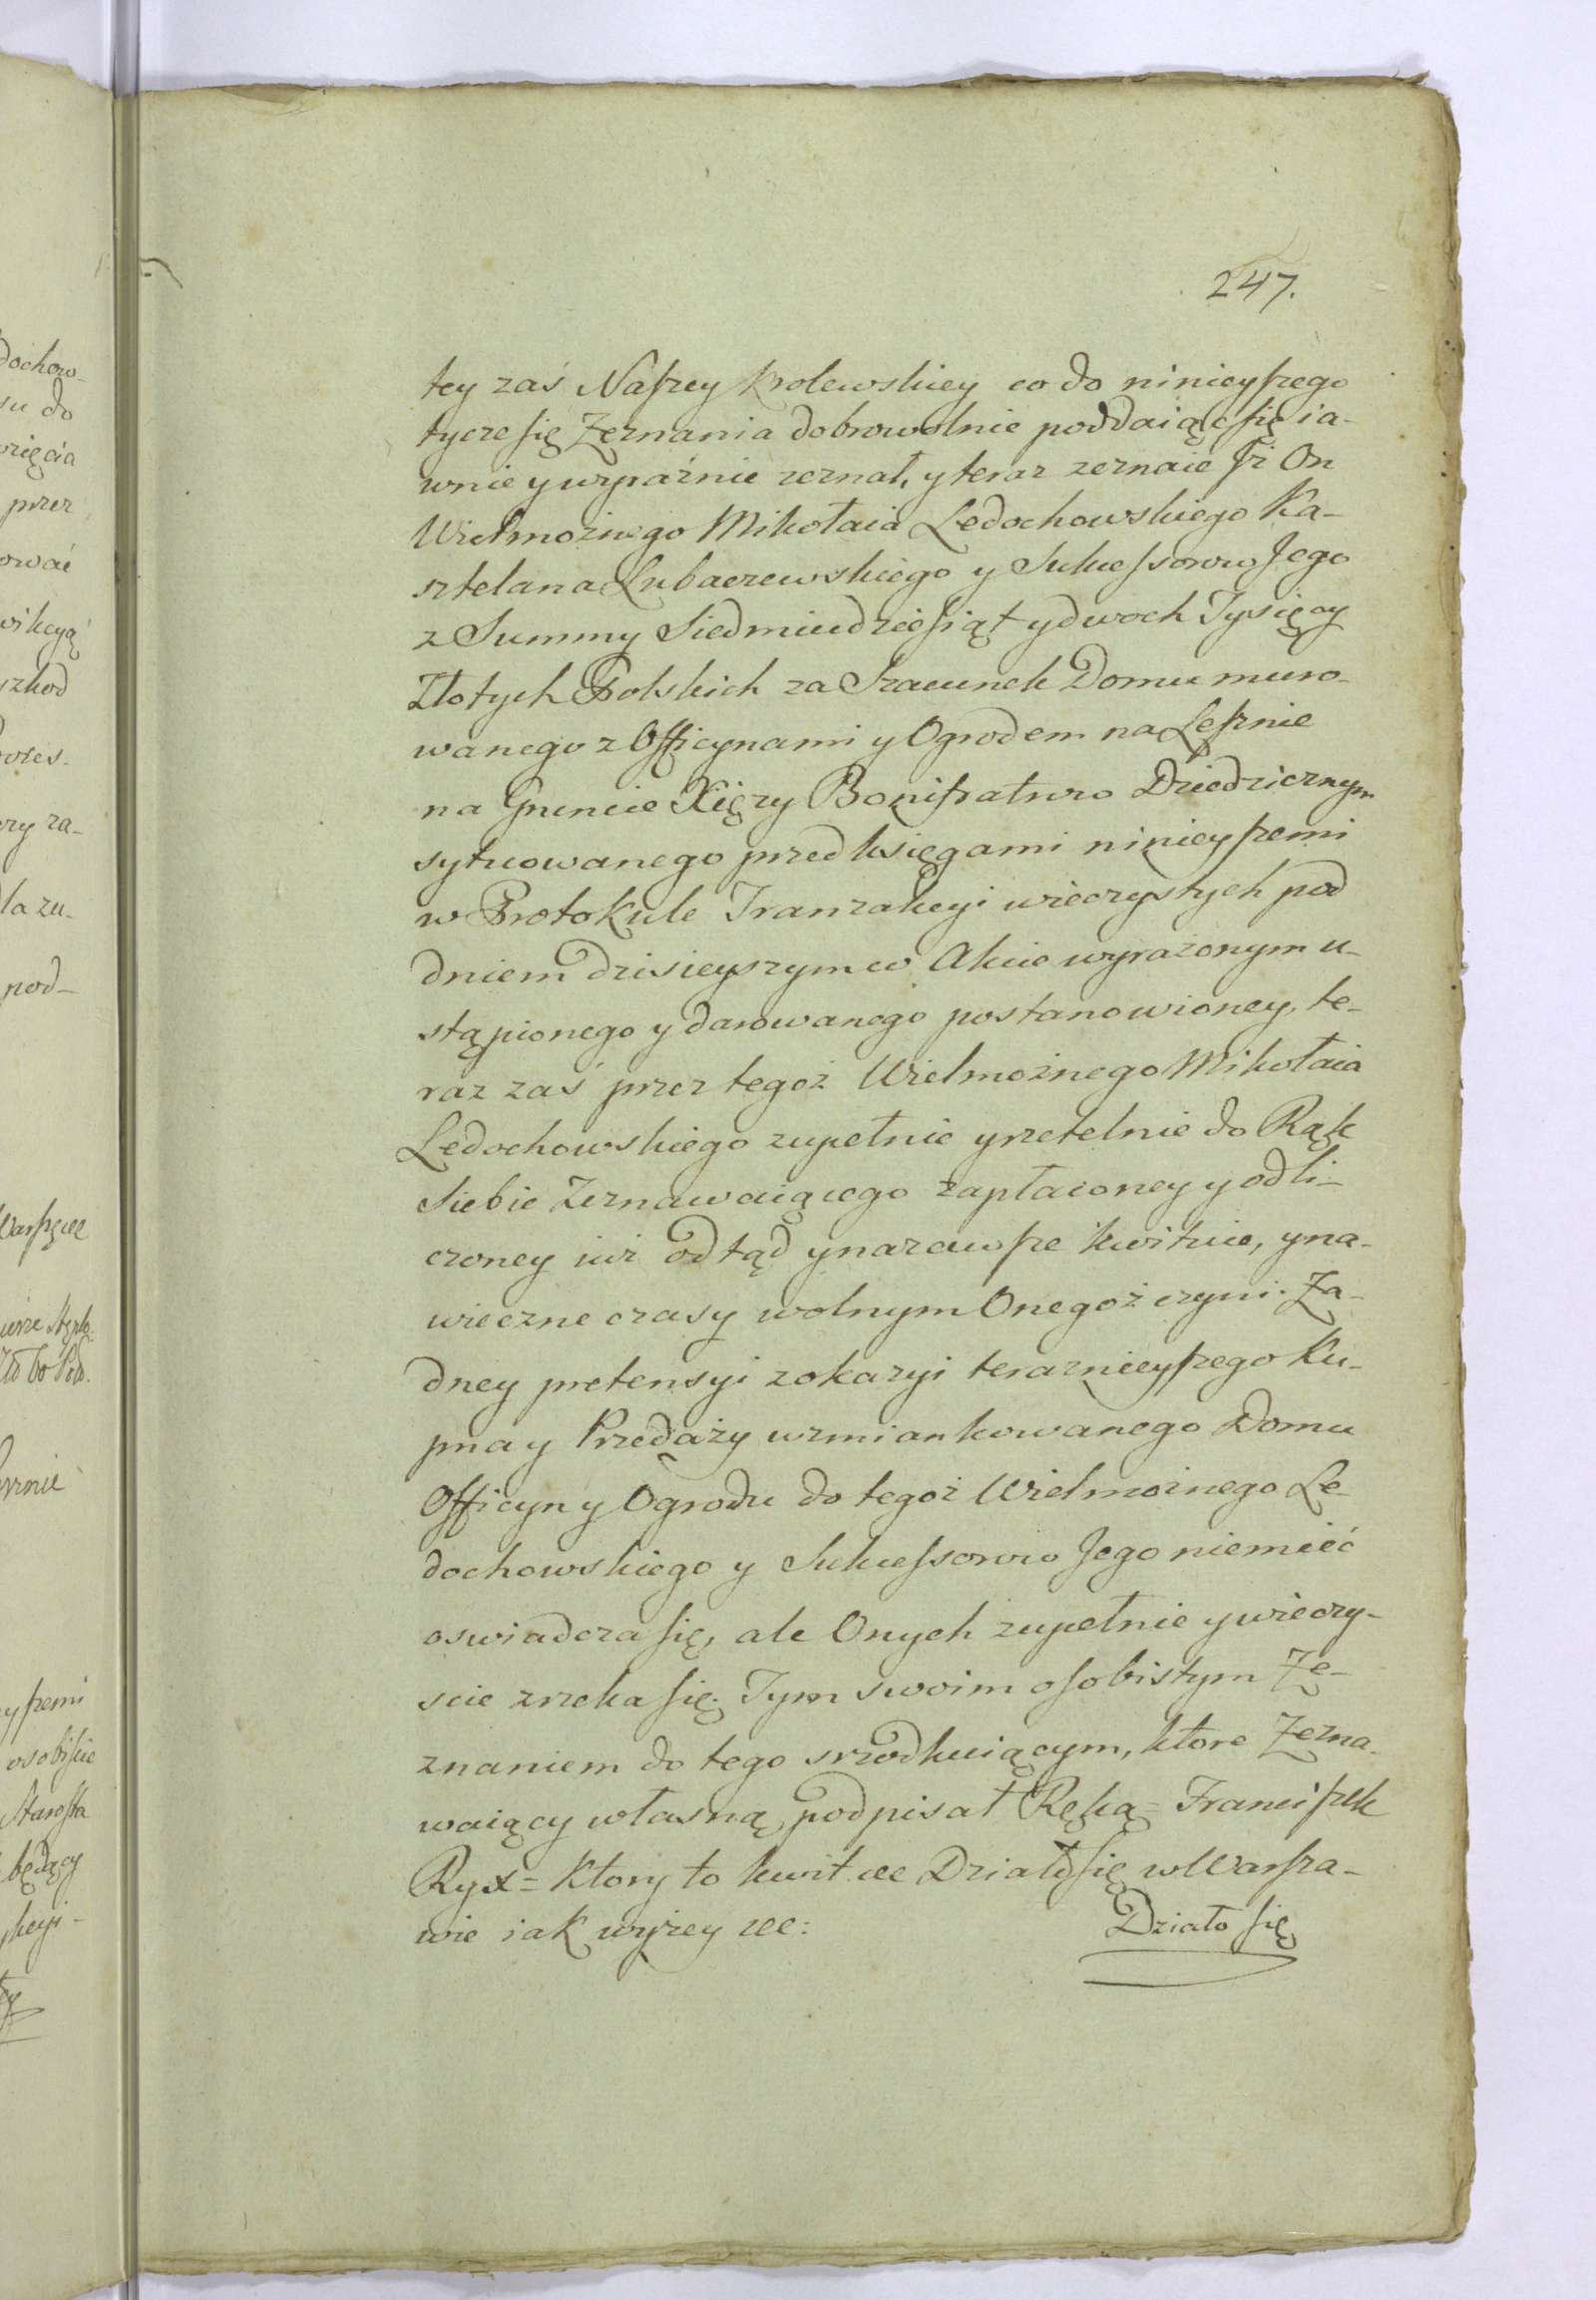 247.
tey zaś Naszey Krolewskiey co do ninieyszego
tycze się Zeznania dobrowolnie poddaiąc się ia-
wnie y wyraźnie zeznał, y teraz zeznaie Iż On
Wielmożnego Mikołaia Ledochowskiego Ka-
sztelana Lubaczewskiego y Sukcessorow Jego
z Summy Siedmiudziesiąt y dwoch Tysięcy
Złotych Polskich za Szacunek Domu muro-
wanego z Officynami y Ogrodem na Lesznie
na Gruncie Xięży Bonifratrow Dziedzicznym
sytuowanego przed księgami ninieyszemi
w Protokule Tranzakcyi wieczystych pod
dniem dzisieyszym w Akcie wyrażonym u-
stąpionego y darowanego postanowioney, te-
raz zaś przez tegoż Wielmożnego Mikołaia
Ledochowskiego zupełnie y rzetelnie do Rąk
Siebie Zeznawaiącego zapłaconey y odli-
czoney iuż odtąd y na zawsze kwituie, y na
wieczne czasy wolnym Onegoż czyni. Ża-
dney pretensyi z okazyi teraznieyszego Ku-
pna y Przedaży wzmiankowanego Domu
Officyn y Ogrodu do tegoż Wielmożnego Le-
dochowskiego y Sukcessorow Jego niemieć
oswiadcza się, ale Onych zupełnie y wieczy-
scie zrzeka się. Tym swoim osobistym Ze-
znaniem do tego srzodkuiącym, ktore Zezna-
waiący własną podpisał Ręką = Franciszek
Ryx = Ktory to kwit etc Działo się w Warsza-
wie iak wyżey etc:
Działo się
dochow-
su do
przez
ować
zkod
zy za-
la zu-
pod-
Warszawie
yszemi
osobiscie
Starosta
będący